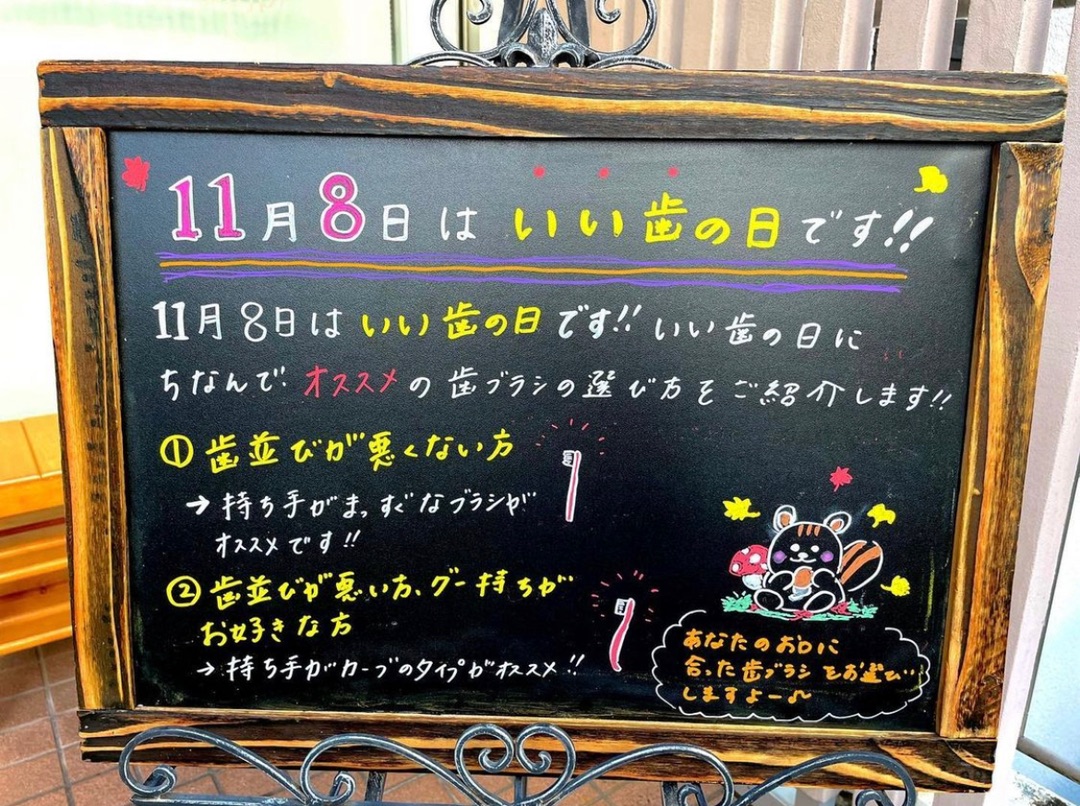 11月8日は いい歯の日です!!
11月8日は いい歯の日 です!! いい歯の日に
ちなんで オススメの歯ブラシの選び方をご紹介します!!
① 歯並びが悪くない方
→ 持ち手がまっすぐなブラシが
オススメです!!
② 歯並びが悪い方、グー持ちが
お好きな方
→ 持ち手がカーブのタイプがオススメ!!
あなたのお口に
合った歯ブラシをお選び
しますよー♪